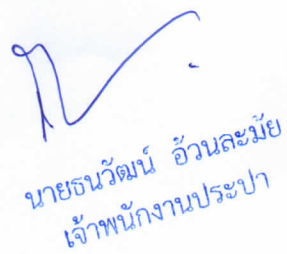 นายธนวัฒน์ อ้วนละมัย
เจ้าพนักงานประปา